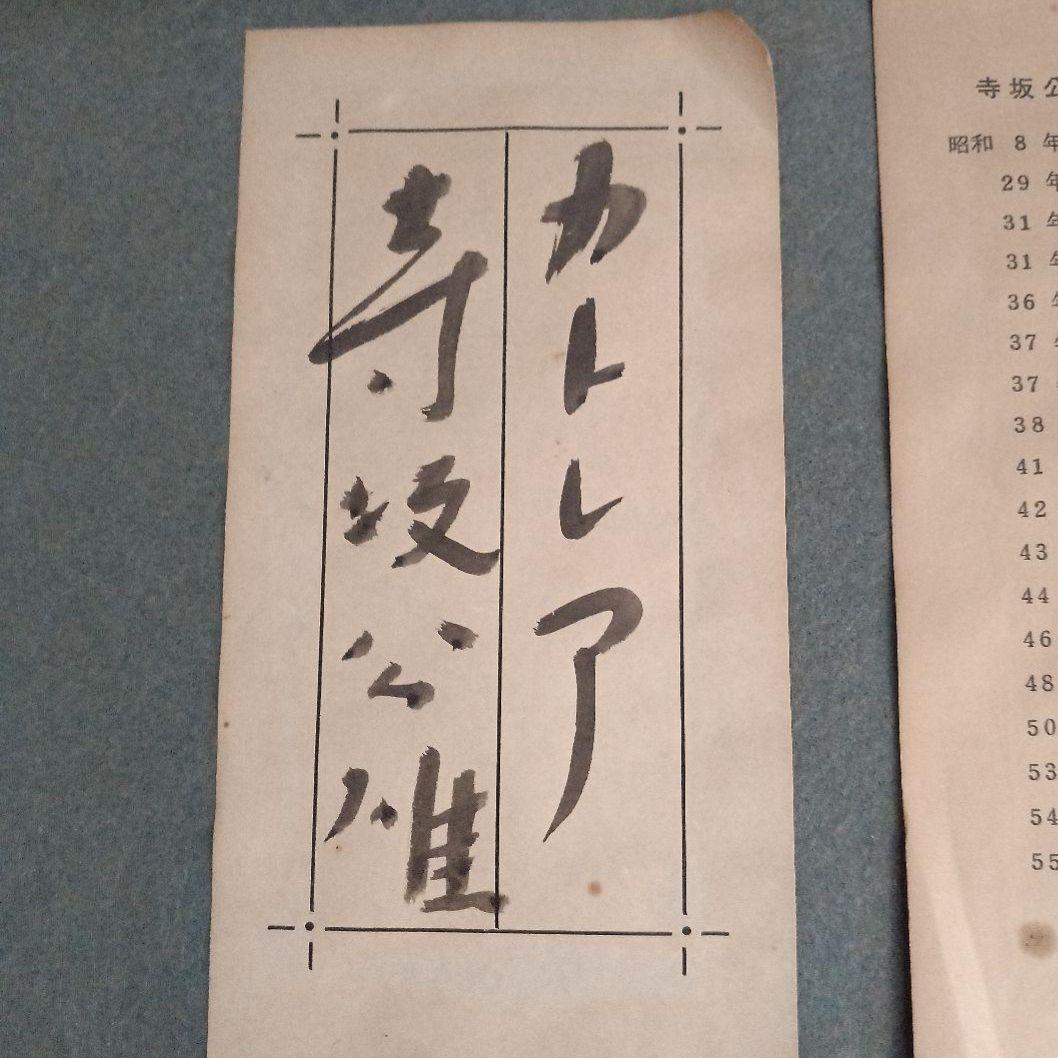 カトレア
寺坂公雄
寺坂公
昭和 8 年
29 年
31 年
31 年
36 年
37 年
37
38
41
42
43
44
46
48
50
53
54
55